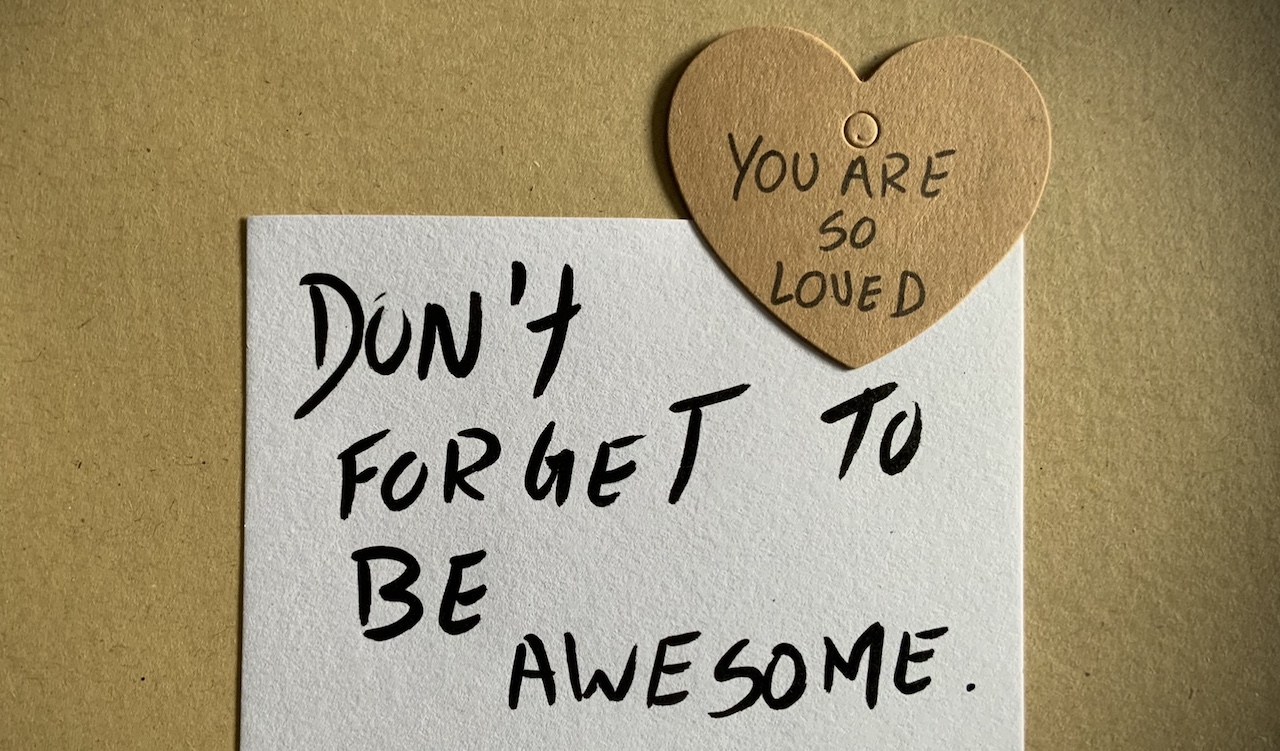 YOU ARE
SO
LOVED
DON't
FORGET TO
BE
AWESOME.